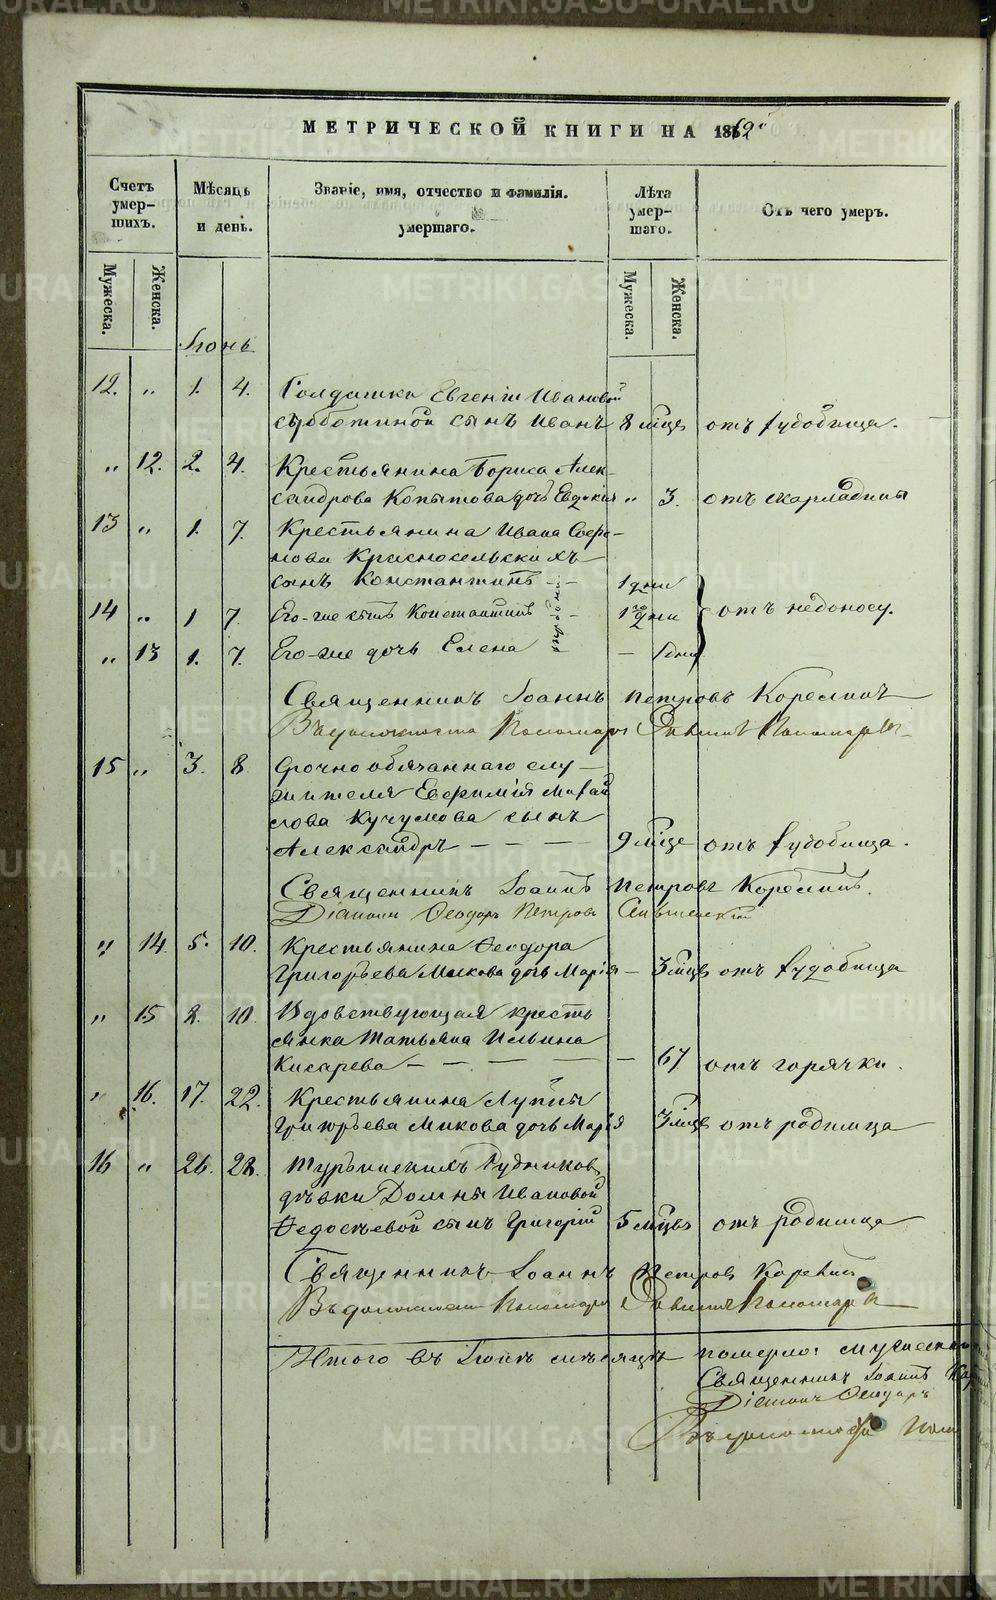 МЕТРИЧЕСКОЙ КНИГИ НА 1862й
Счетъ умер-шихъ.
Мѣсяцъ и день.
Званіе, имя, отчество и фамилія. умершаго.
Лѣта умер-шаго.
Отъ чего умеръ.
Мужеска.
Женска.
Мужеска.
Женска.
Іюнь
12. „ 1. 4. Солдатки Евгеніи Ивановой
Субботиной сынъ Иванъ 8 мѣце отъ худобища.
„ 12. 2. 4. Крестьянина Бориса Алек-
сандрова Копытова дочь Евдокія „ 3. отъ скарлатины
13 „ 1. 7. Крестьянина Ивана Софро-
нова Красносельскихъ
сынъ Константинъ - - 1 дни
14 „ 1 7. Его-же сынъ Константинъ 1 дни отъ недоносу.
„ 13 1. 7. Его-же дочь Елена - 1 дни
Священникъ Іоаннъ Петровъ Корелинъ
Въ должности Пономаря Пономаревъ
15 „ 3. 8. Срочно обязаннаго слу-
жителя Евфимія Михай
лова Кучумова сынъ
Александръ - - - 9 мѣце отъ худобища.
Священникъ Іоаннъ Петровъ Корелинъ.
Діаконъ Ѳеодоръ Петровъ
„ 14. 5. 10. Крестьянина Ѳеодора
Григорьева Микова дочь Марія - 3 мѣце отъ худобища
„ 15 8. 10. Вдовствующая кресть
янка Татьяна Ильина
Кисарева - - - - - 67 отъ горячки.
„ 16. 17. 22. Крестьянина Луппы
Григорьева Микова дочь Марія 3 мѣце отъ родимца
16 „ 26. 28. Турьинскихъ Рудниковъ
дѣвки Домны Ивановой
Ѳедосѣевой сынъ Григорій 5 мѣце отъ родимца
Священникъ Іоаннъ Петровъ Корелинъ
Въ должности Пономаря Пономаревъ
Итого въ Іюнѣ мѣсяцѣ померло: мужеска
Священникъ Іоаннъ
Діаконъ Ѳеодоръ
Въ должности Поно
METRIKI.GASO-URAL.RU